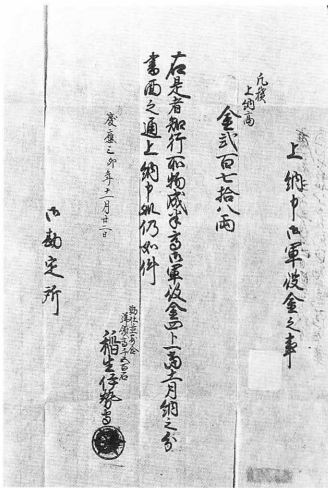 上納申御軍役金之事
凡積
上納高
金弐百七拾八両
右是者知行所物成半高御軍役金四上高十一月納之分
書面之通上納申処仍如件
慶應三卯年十一月廿二日
稲生伊勢守
御勘定所